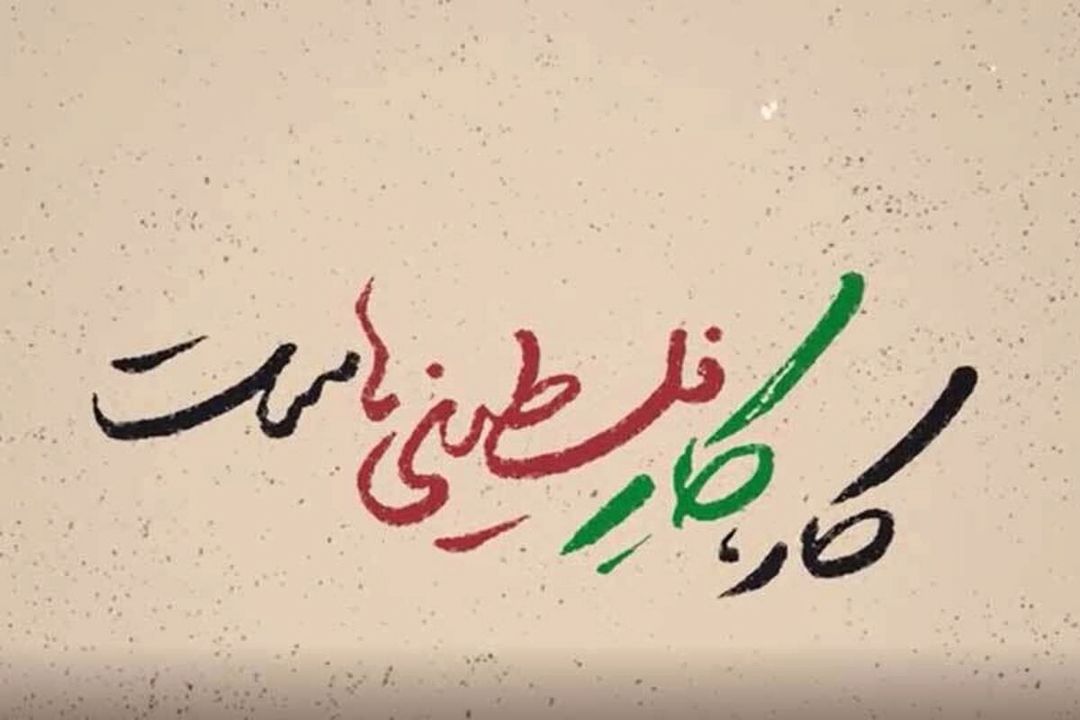 کار، کارِ فلسطینی‌هاست